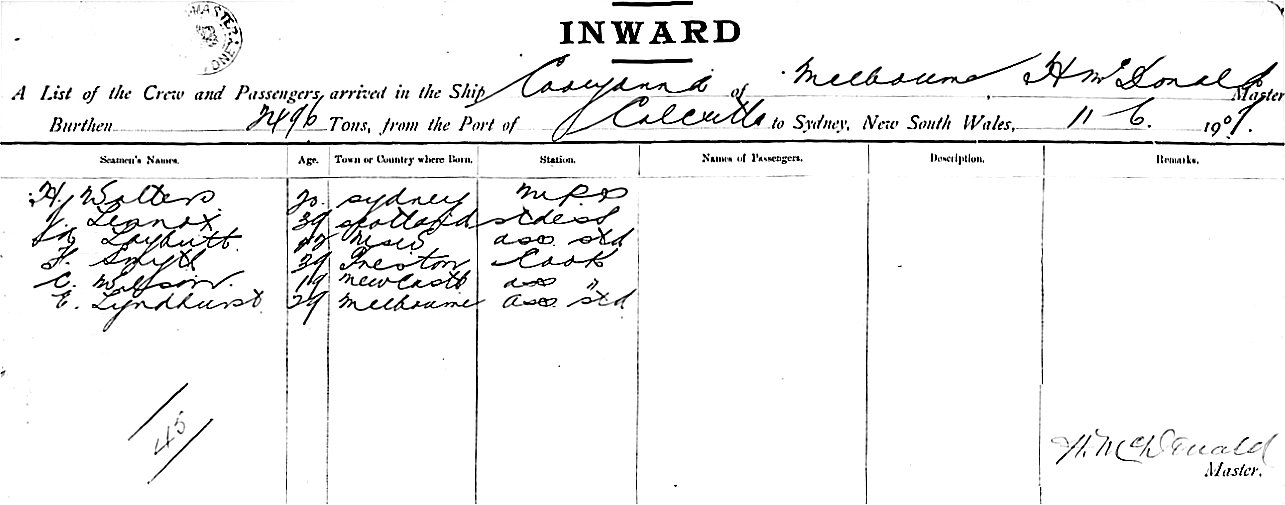 INWARD
A List of the Crew and Passengers, arrived in the Ship Cooyanna of Melbourne, H McDonald Master
Burthen 2496 Tons, from the Port of Calcutta to Sydney, New South Wales, 11 6. 1907.
Seamen's Names. Age. Town or Country where Born. Station. Names of Passengers. Description. Remarks.
H. Walters 20. Sydney
J. Lennox 39 Scotland
Laybutt ass std
F. Smyth 39 Preston Cook
C. Wilson. 19 Newcastle ass "
E. Lyndhurst 29 Melbourne ass std
45
H. McDonald
Master.